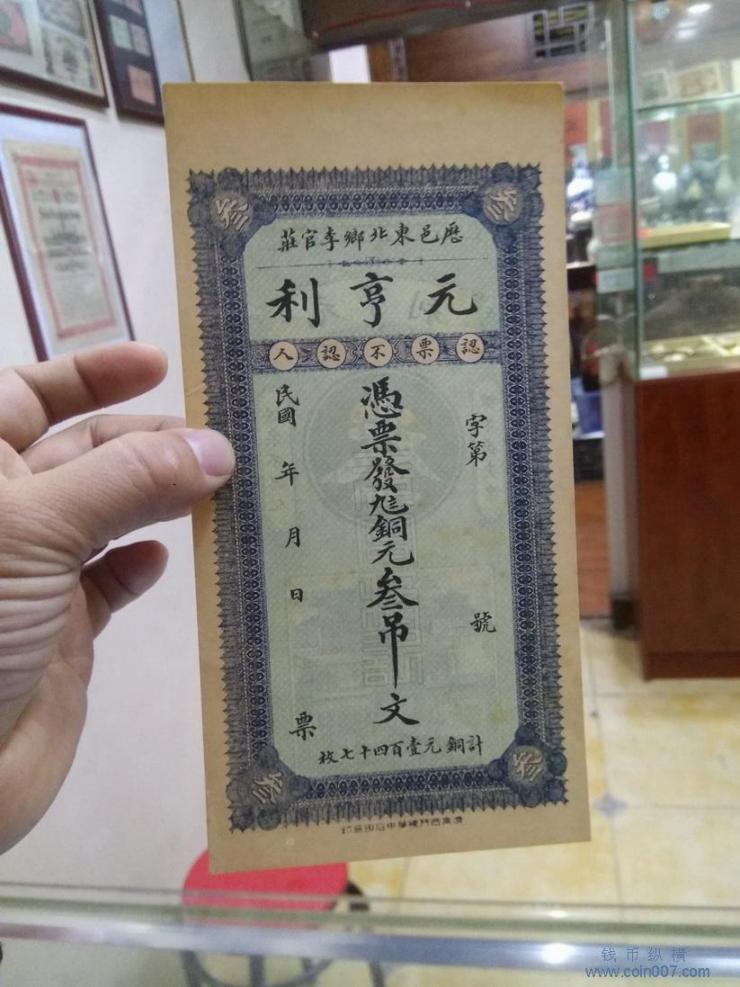 歷邑東北鄉李官莊
元亨利
認票不認人
字第 號
憑票發九八銅元叁吊文
民國 年 月 日 票
計銅元壹百四十七枚
钱币纵横
www.coin007.com